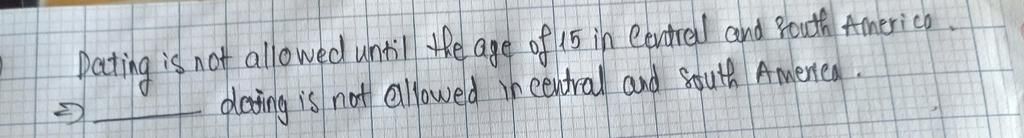 Dating is not allowed until the age of 15 in Central and South America.
=> ______ dating is not allowed in central and south America.